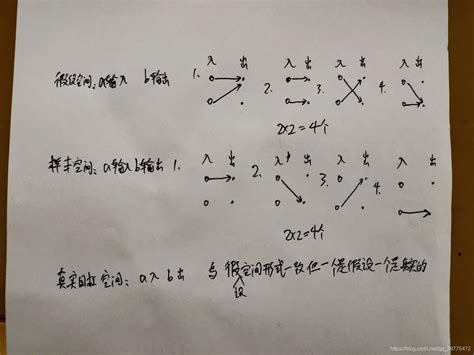 入 出 入 出 入 出 入 出
假设空间：a输入 b输出 1、 2、 3、 4、
2×2=4个
入 出 入 出 入 出 入 出
样本空间：a输入b输出 1、 2、 3、 4、
2×2=4个
真实目标空间：a入 b出 与假设空间形式一致但一个是假设一个是真实的
https://blog.csdn.net/qq_39775472